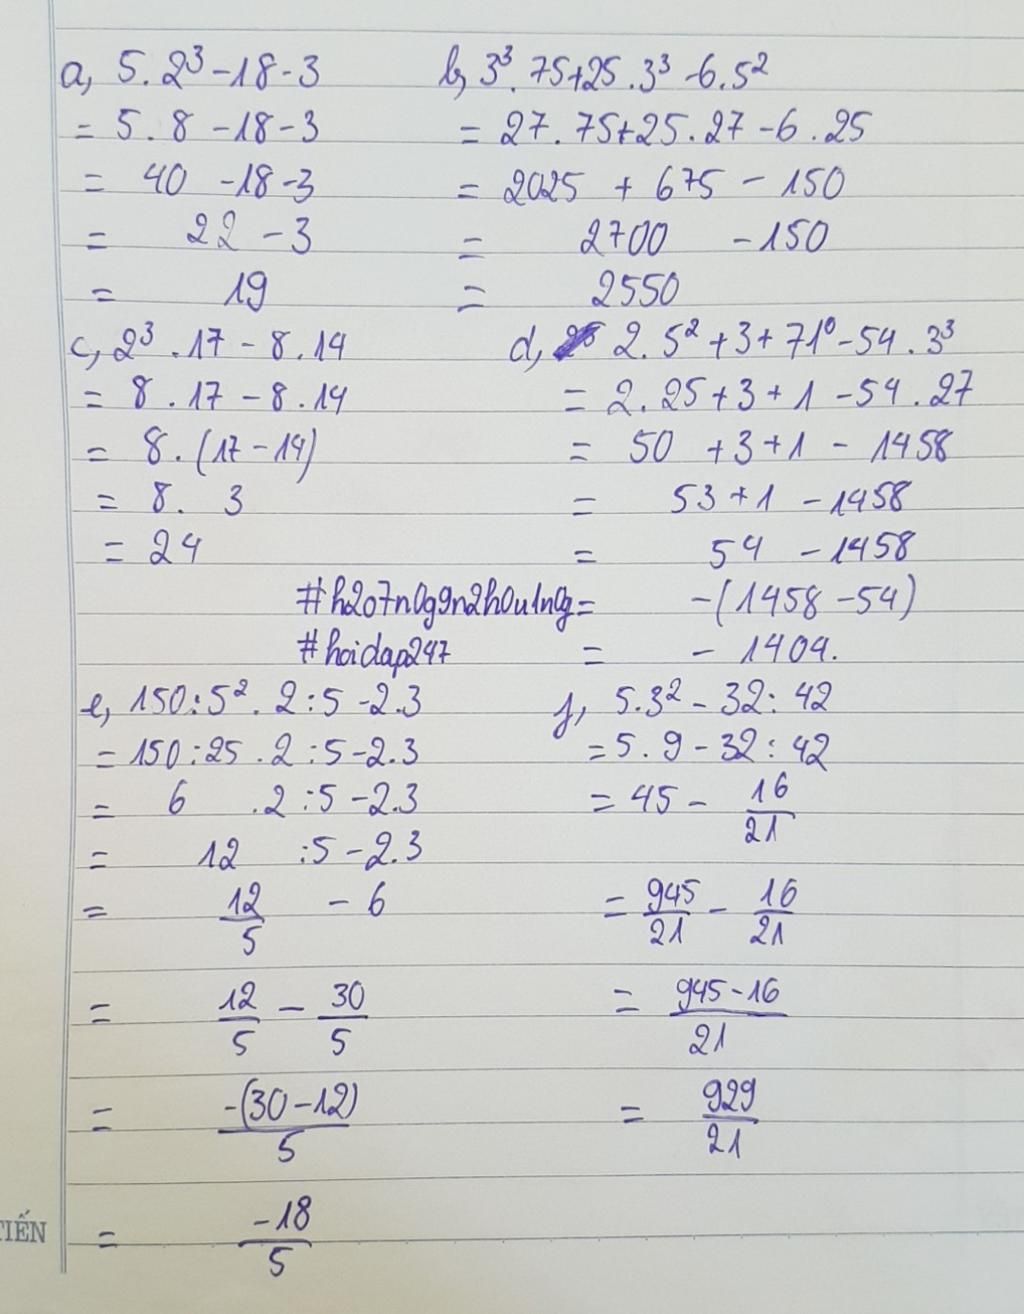 a, 5.2³-18-3
= 5.8-18-3
= 40-18-3
= 22-3
= 19
b, 3³.75+25.3³-6.5²
= 27.75+25.27-6.25
= 2025+675-150
= 2700-150
= 2550
c, 2³.17-8.14
= 8.17-8.14
= 8.(17-14)
= 8.3
= 24
d, 2.5²+3+71⁰-54.3³
= 2.25+3+1-54.27
= 50+3+1-1458
= 53+1-1458
= 54-1458
= -(1458-54)
= -1404.
#h2o7n0g9n2h0u1n0g
#hoidap247
e, 150:5².2:5-2.3
= 150:25.2:5-2.3
= 6.2:5-2.3
= 12:5-2.3
= 12/5 - 6
= 12/5 - 30/5
= -(30-12)/5
= -18/5
f, 5.3²-32:42
= 5.9-32:42
= 45 - 16/21
= 945/21 - 16/21
= 945-16/21
= 929/21
TIẾN